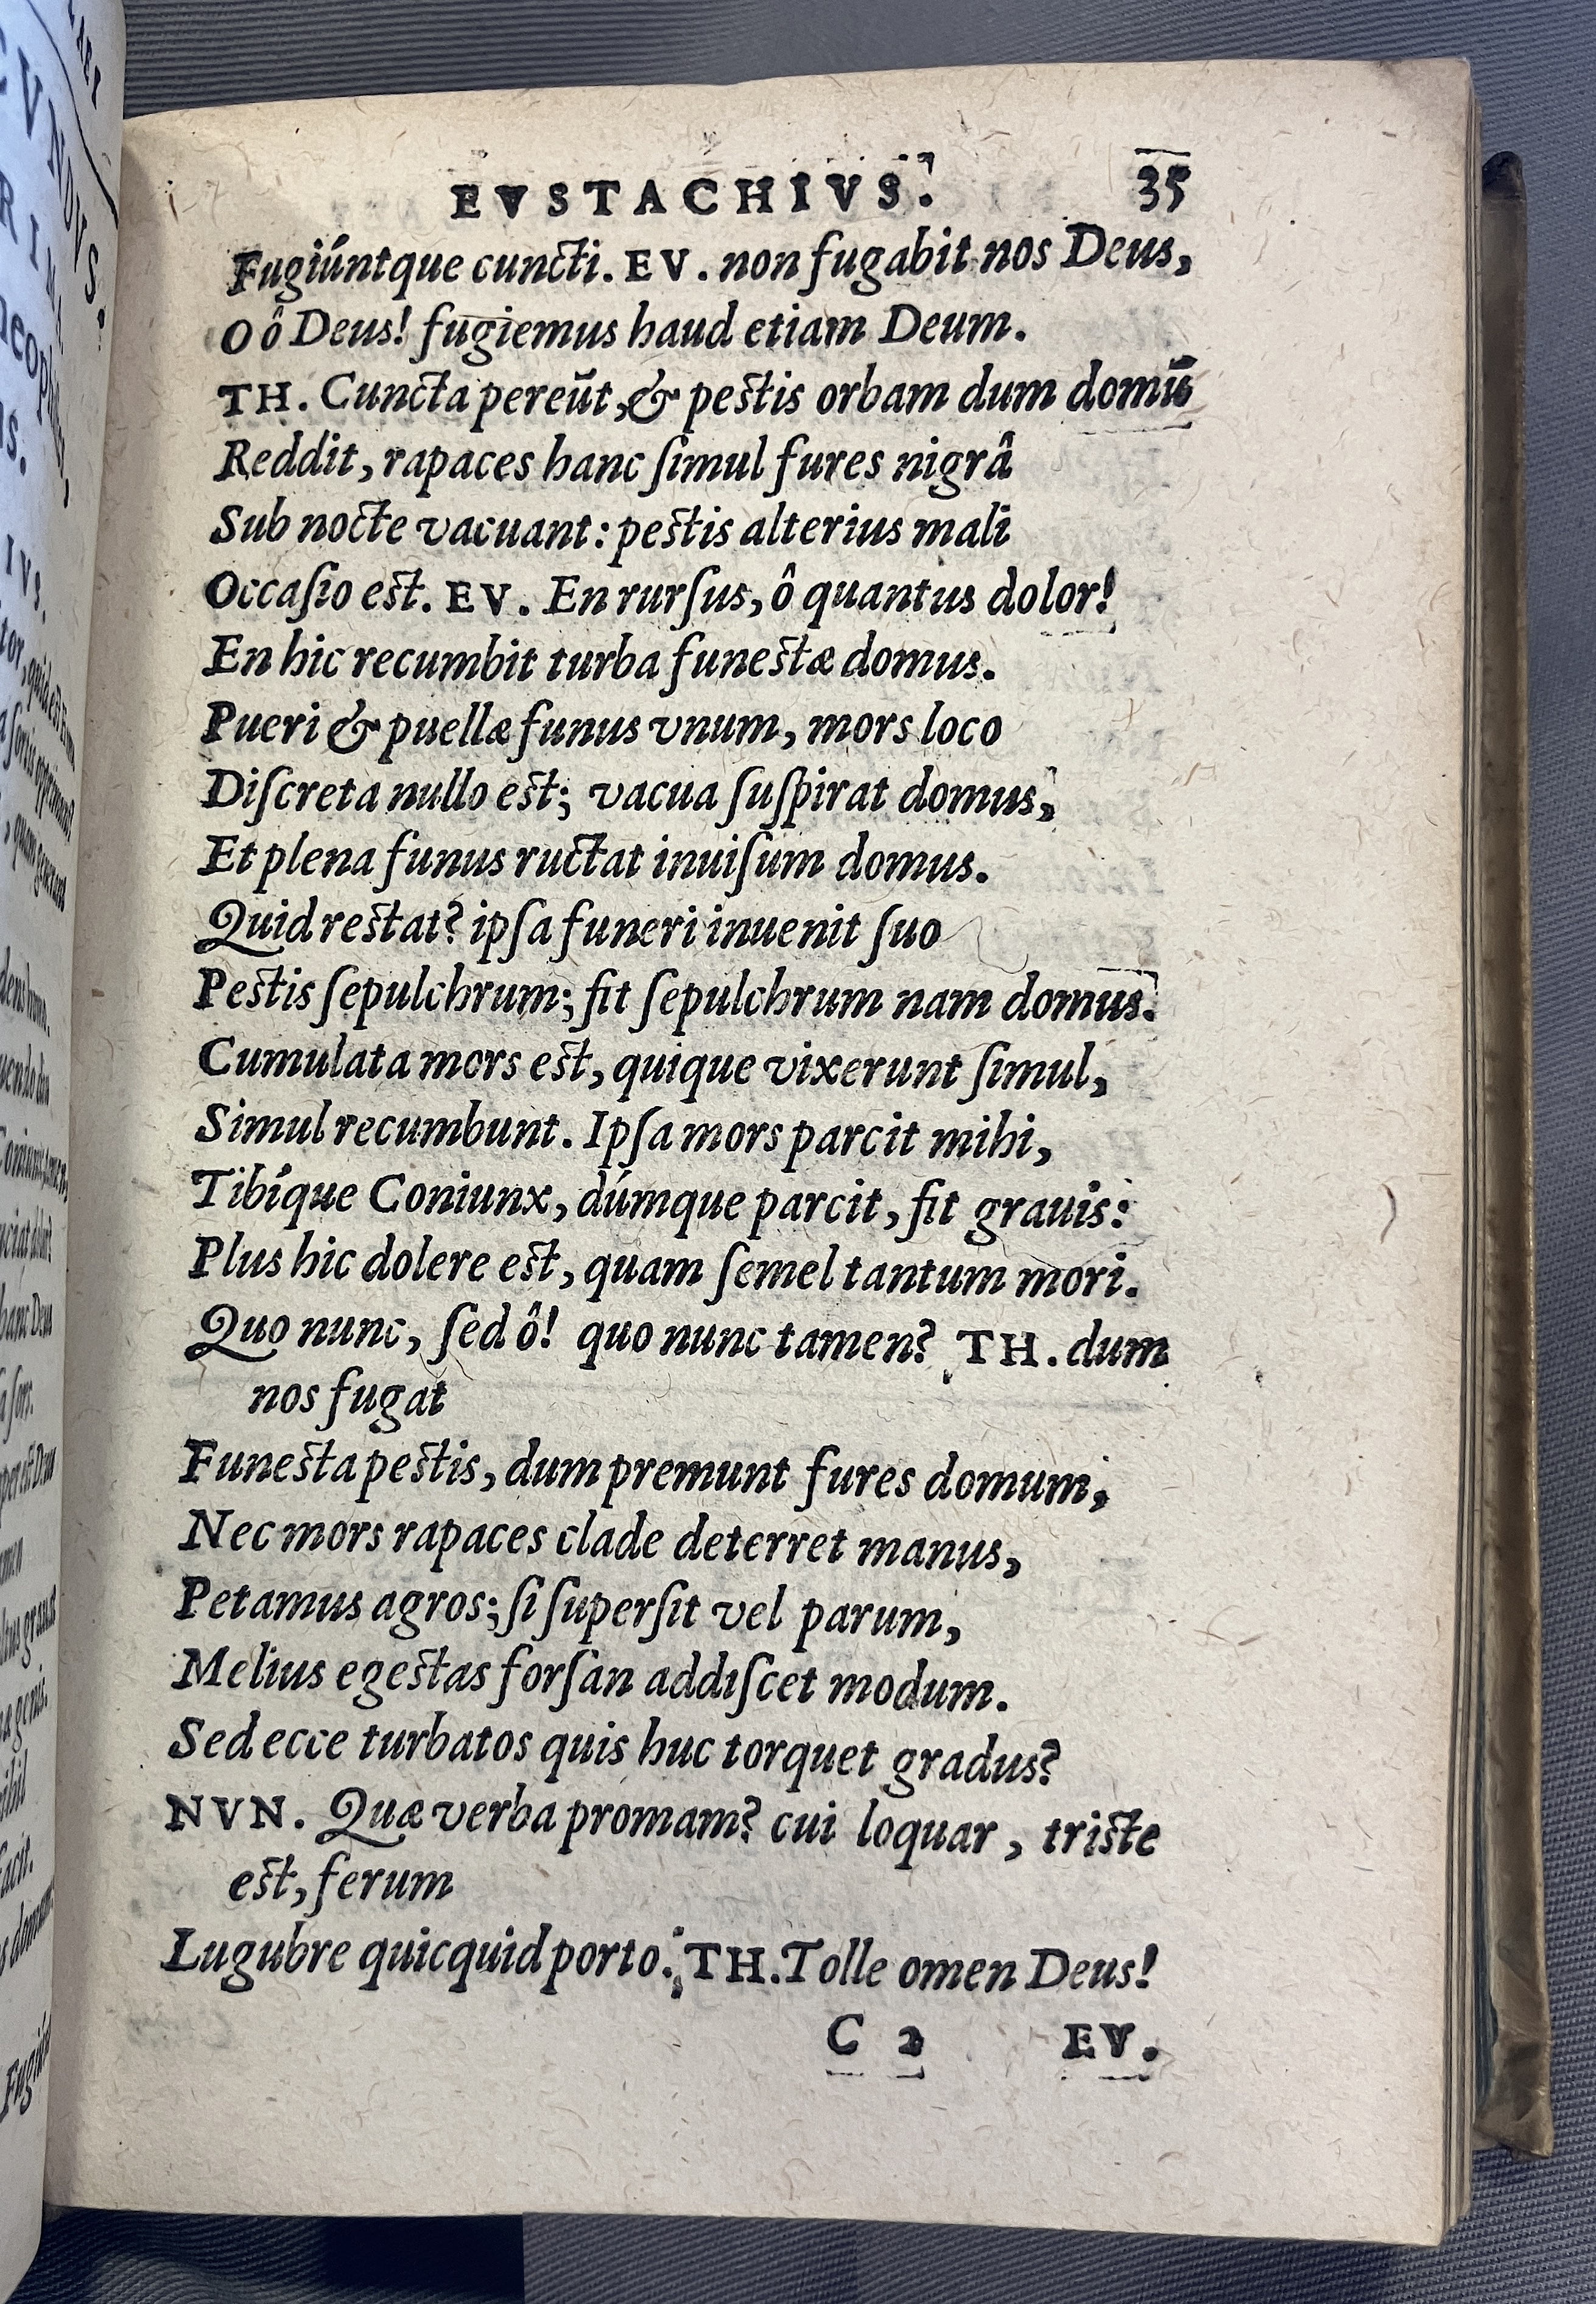 EVSTACHIVS. 35
Fugiúntque cuncti. EV. non fugabit nos Deus,
O ô Deus! fugiemus haud etiam Deum.
TH. Cuncta pereūt, & pestis orbam dum domū
Reddit, rapaces hanc ſimul fures nigrâ
Sub nocte vacuant: pestis alterius mali
Occaſio est. EV. En rurſus, ô quantus dolor!
En hic recumbit turba funestæ domus.
Pueri & puellæ funus vnum, mors loco
Diſcreta nullo est; vacua ſuſpirat domus,
Et plena funus ructat inuiſum domus.
Quid restat? ipſa funeri inuenit ſuo
Pestis ſepulchrum; fit ſepulchrum nam domus.
Cumulata mors est, quique vixerunt ſimul,
Simul recumbunt. Ipſa mors parcit mihi,
Tibíque Coniunx, dúmque parcit, fit grauis:
Plus hic dolere est, quam ſemel tantum mori.
Quo nunc, ſed ô! quo nunc tamen? TH. dum
nos fugat
Funesta pestis, dum premunt fures domum,
Nec mors rapaces clade deterret manus,
Petamus agros; ſi ſuperſit vel parum,
Melius egestas forſan addiſcet modum.
Sed ecce turbatos quis huc torquet gradus?
NVN. Quæ verba promam? cui loquar, triste
est, ferum
Lugubre quicquid porto. TH. Tolle omen Deus!
C 2 EV.